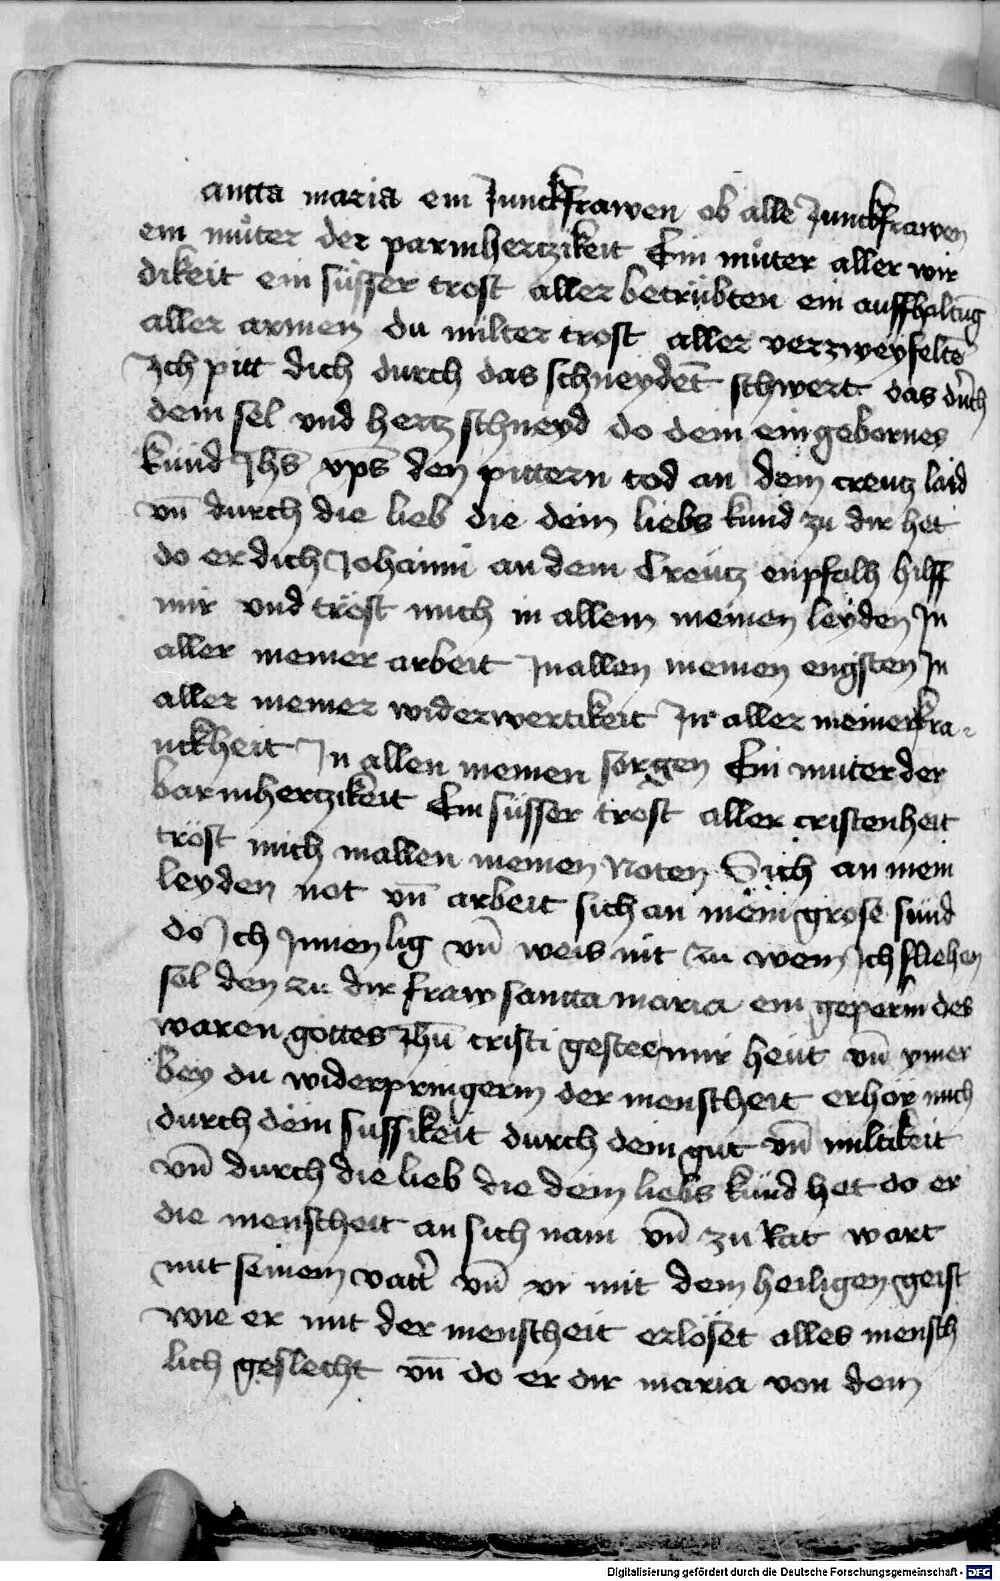 antta maria ein Junckfrawen ob alle Junckfrawen
ein muͦter der parmhertzikeit Ein muͦter aller wir
dikeit ein süsser trost aller betrübten ein auffhaltūg
aller armen du milter trost aller verzweyfeltē
Ich pitt dich durch das schneydet̄ schwert das durch
dein sel vnd hertz schneyd do dein eingebornes
kind Jhs̄ xps̄ den pittern tod an dem creutz laid
vn̄ durch die lieb die dein liebs kind zu dir het
do er dich Johanni an dem Creütz enpfalh hilff
mir vnd tröst mich in allem meinen leyden In
aller meiner arbeit In allen meinen engsten In
aller meiner widerwertikeit In aller meiner kra-
nckheit In allen meinen sorgen Ein muter der
barmhertzikeit Ein süsser trost aller cristenheit
tröst mich in allen meinen Noten Sich an mein
leyden not vn̄ arbeit sich an mein grose sünd
do Ich Innen lig vn̄ weis nit zu wem Ich fliehen
sol den zu dir fraw santta maria ein geperin des
waren gottes Jhū cristi gestee mir heüt vn̄ ymer
bey du widerpringerin der menscheit erhör mich
durch dein sussikeit durch dein gut vn̄ miltikeit
vn̄ durch die lieb die dein liebs künd het do er
die menscheit an sich nam vn̄ zu Rat wart
mit seinem vatt̄ vn̄ mit dem heiligen geist
wie er mit der menscheit erlöset alles mensch
lich geslecht vn̄ do er dir maria von dem
Digitalisierung gefördert durch die Deutsche Forschungsgemeinschaft - DFG